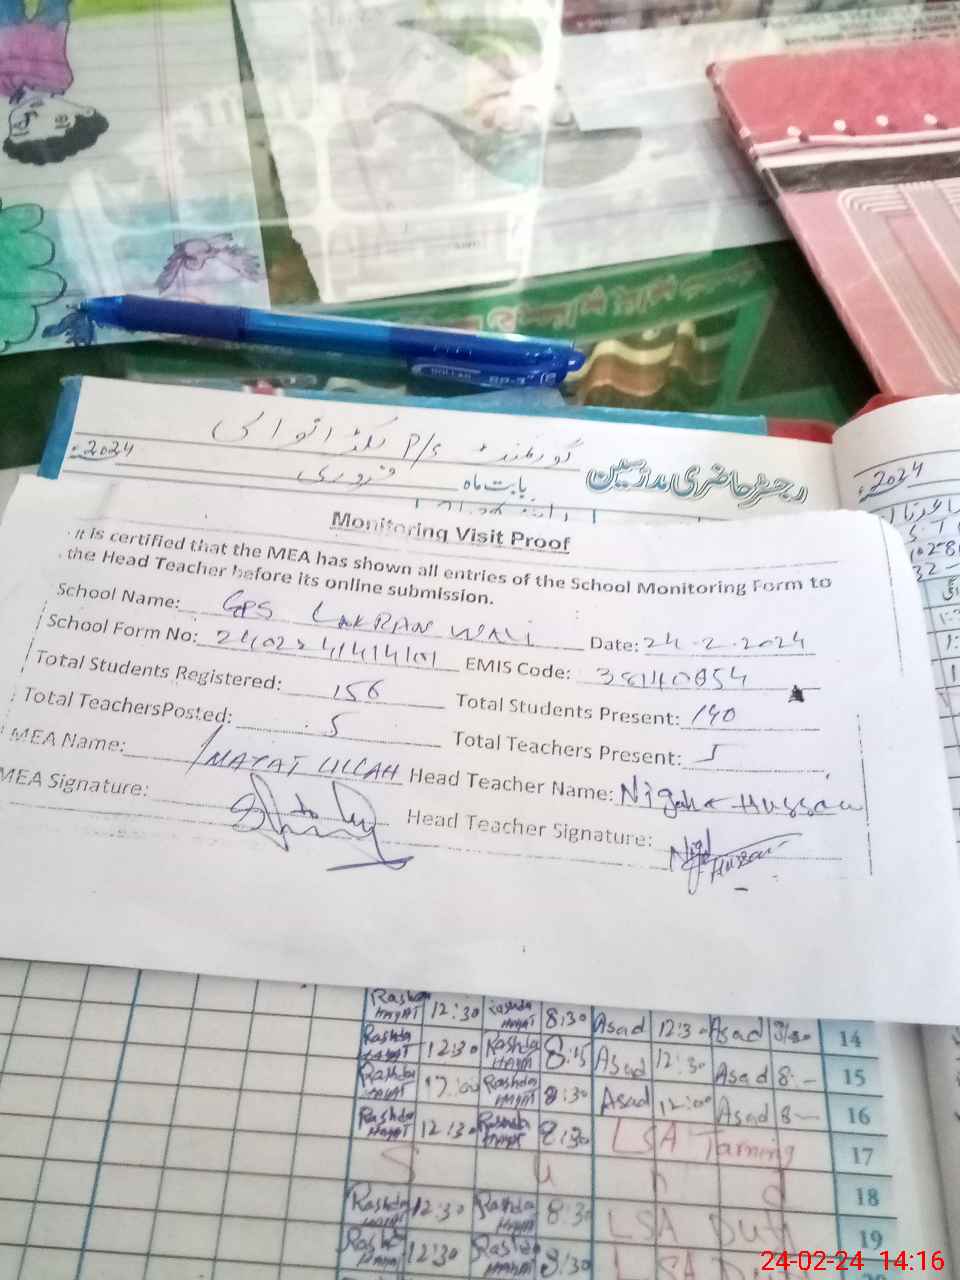 گورنمنٹ P/s لکڑانوالی
2024
رجسٹر حاضری مدرسین
بابت ماہ فروری
2024
Monitoring Visit Proof
It is certified that the MEA has shown all entries of the School Monitoring Form to
the Head Teacher before its online submission.
School Name: GPS LAKRAN WALI Date: 24-2-2024
School Form No: EMIS Code: 38140054
Total Students Registered: 156 Total Students Present: 140
Total TeachersPosted: 5 Total Teachers Present: 5
MEA Name: INAYAT ULLAH Head Teacher Name: Nigah Hussain
MEA Signature: Head Teacher Signature:
Rashda HAYAT 12:30 Rashda HAYAT 8:30 Asad 12:30 Asad 8:30 14
Rashda HAYAT 12:30 Rashda HAYAT 8:15 Asad 12:30 Asad 8- 15
Rashda HAYAT 12:00 Rashda HAYAT 8:30 Asad 12:00 Asad 8- 16
Rashda HAYAT 12:30 Rashda HAYAT 8:30 LSA Tarning 17
S u n d 18
Rashda HAYAT 12:30 Rashda 8:30 LSA Duty 19
12:30 Rashda 8:30 LSA
24-02-24 14:16